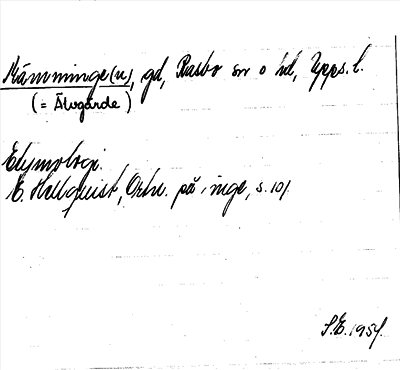 Kämminge(n), gd, Rasbo sn o hd, Upps. l.
(= Älvgärde)
Etymologi.
E. Hellquist, Ortn. på -inge, s. 101
S.E. 1954.